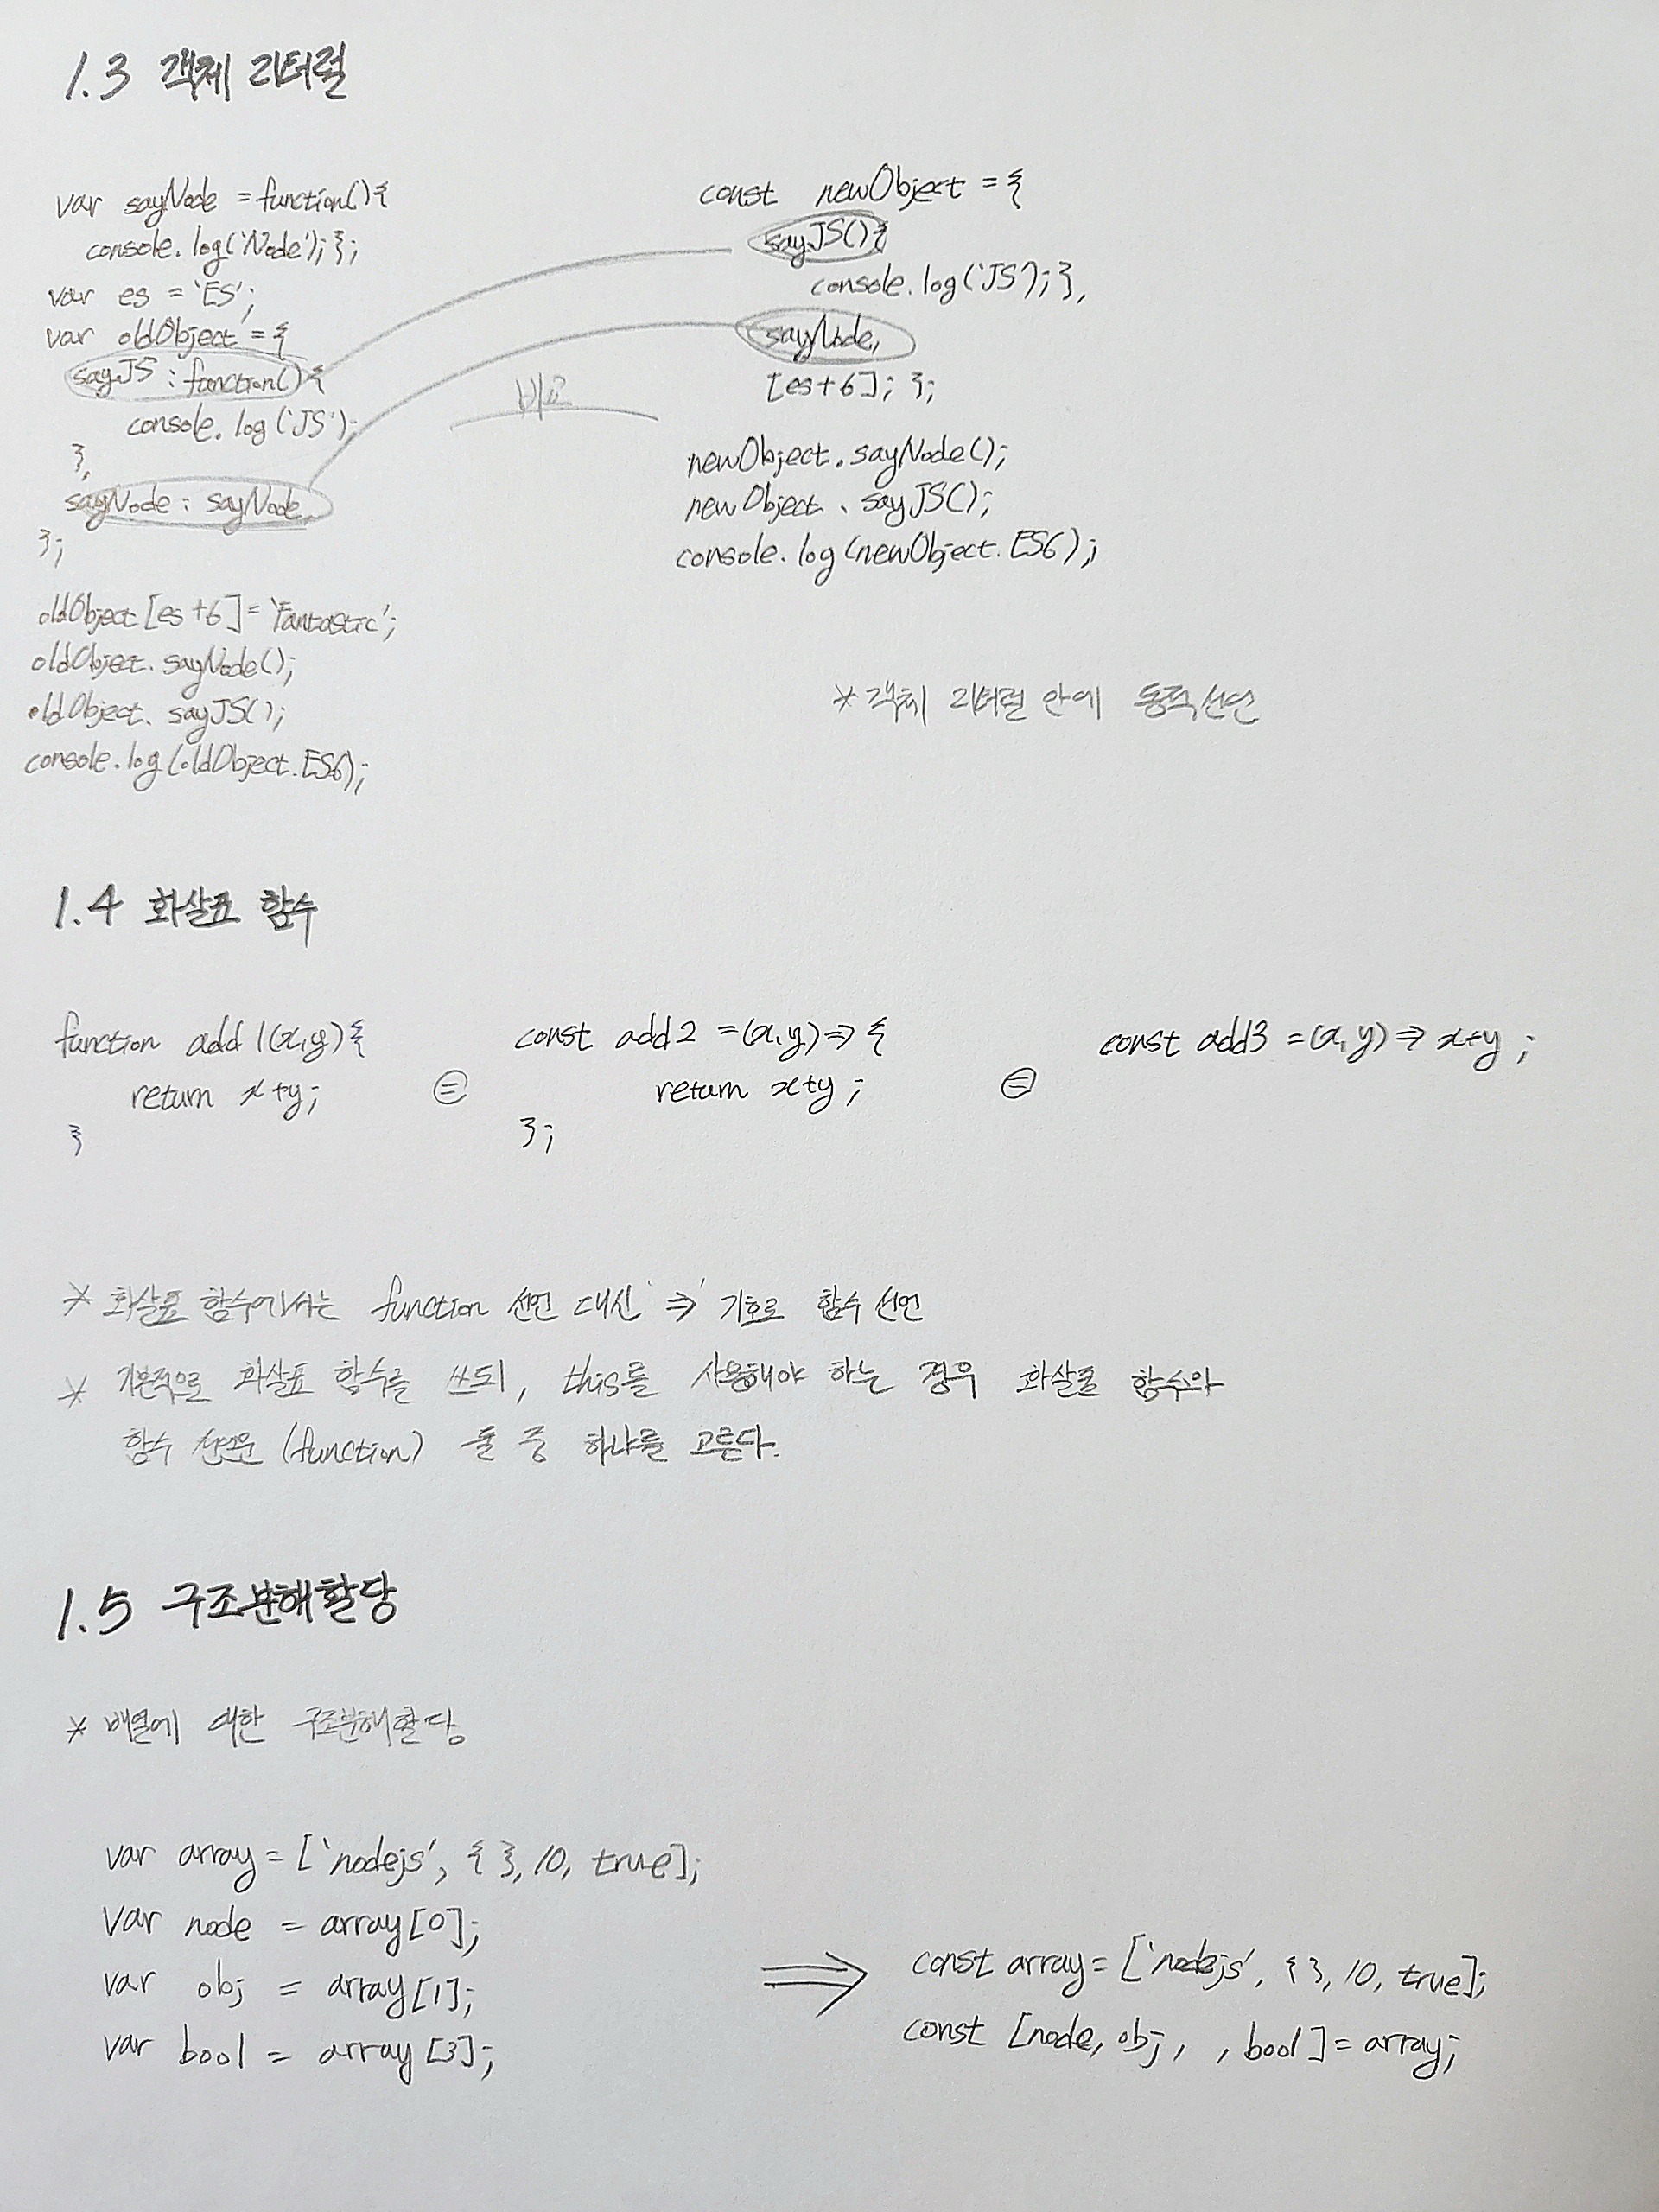 1.3 객체 리터럴
var sayNode = function(){
console.log('Node'); };
var es = 'ES';
var oldObject = {
sayJS : function() {
console.log('JS');
},
sayNode : sayNode,
};
oldObject[es+6] = 'Fantastic';
oldObject.sayNode();
oldObject.sayJS();
console.log(oldObject.ES6);
비교
const newObject = {
sayJS(){
console.log('JS'); },
sayNode,
[es+6]; };
newObject.sayNode();
newObject.sayJS();
console.log(newObject.ES6);
* 객체 리터럴 안에 동적선언
1.4 화살표 함수
function add1(x,y){
return x+y;
}
=
const add2 =(x,y)=> {
return x+y;
};
=
const add3 =(x,y)=> x+y ;
* 화살표 함수에서는 function 선언 대신 '=>' 기호로 함수 선언
* 기본적으로 화살표 함수를 쓰되, this를 사용해야 하는 경우 화살표 함수와
함수 선언문 (function) 둘 중 하나를 고른다.
1.5 구조분해할당
* 배열에 대한 구조분해할당
var array = ['nodejs', { }, 10, true];
var node = array[0];
var obj = array[1];
var bool = array[3];
⇒
const array = ['nodejs', { }, 10, true];
const [node, obj, , bool] = array;